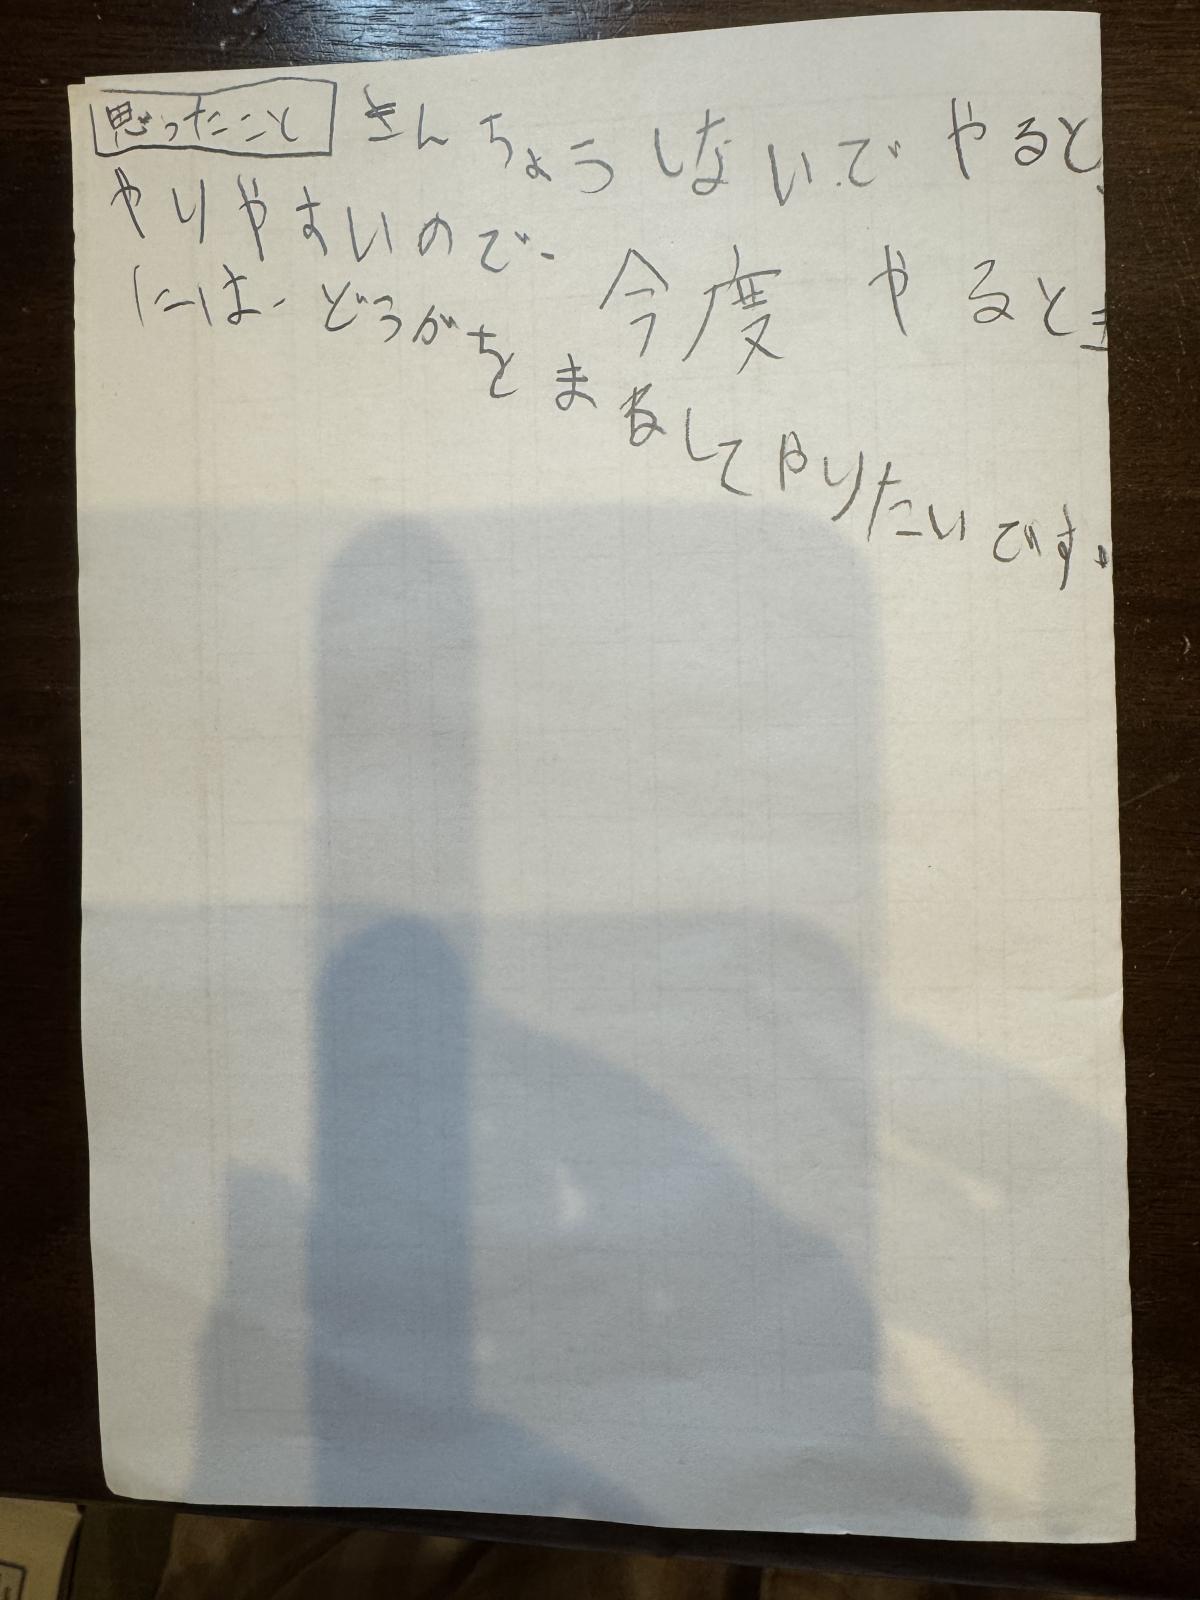 思ったこと きんちょうしないでやると、
やりやすいので、今度やるとき
には、どうがをまねしてやりたいです。